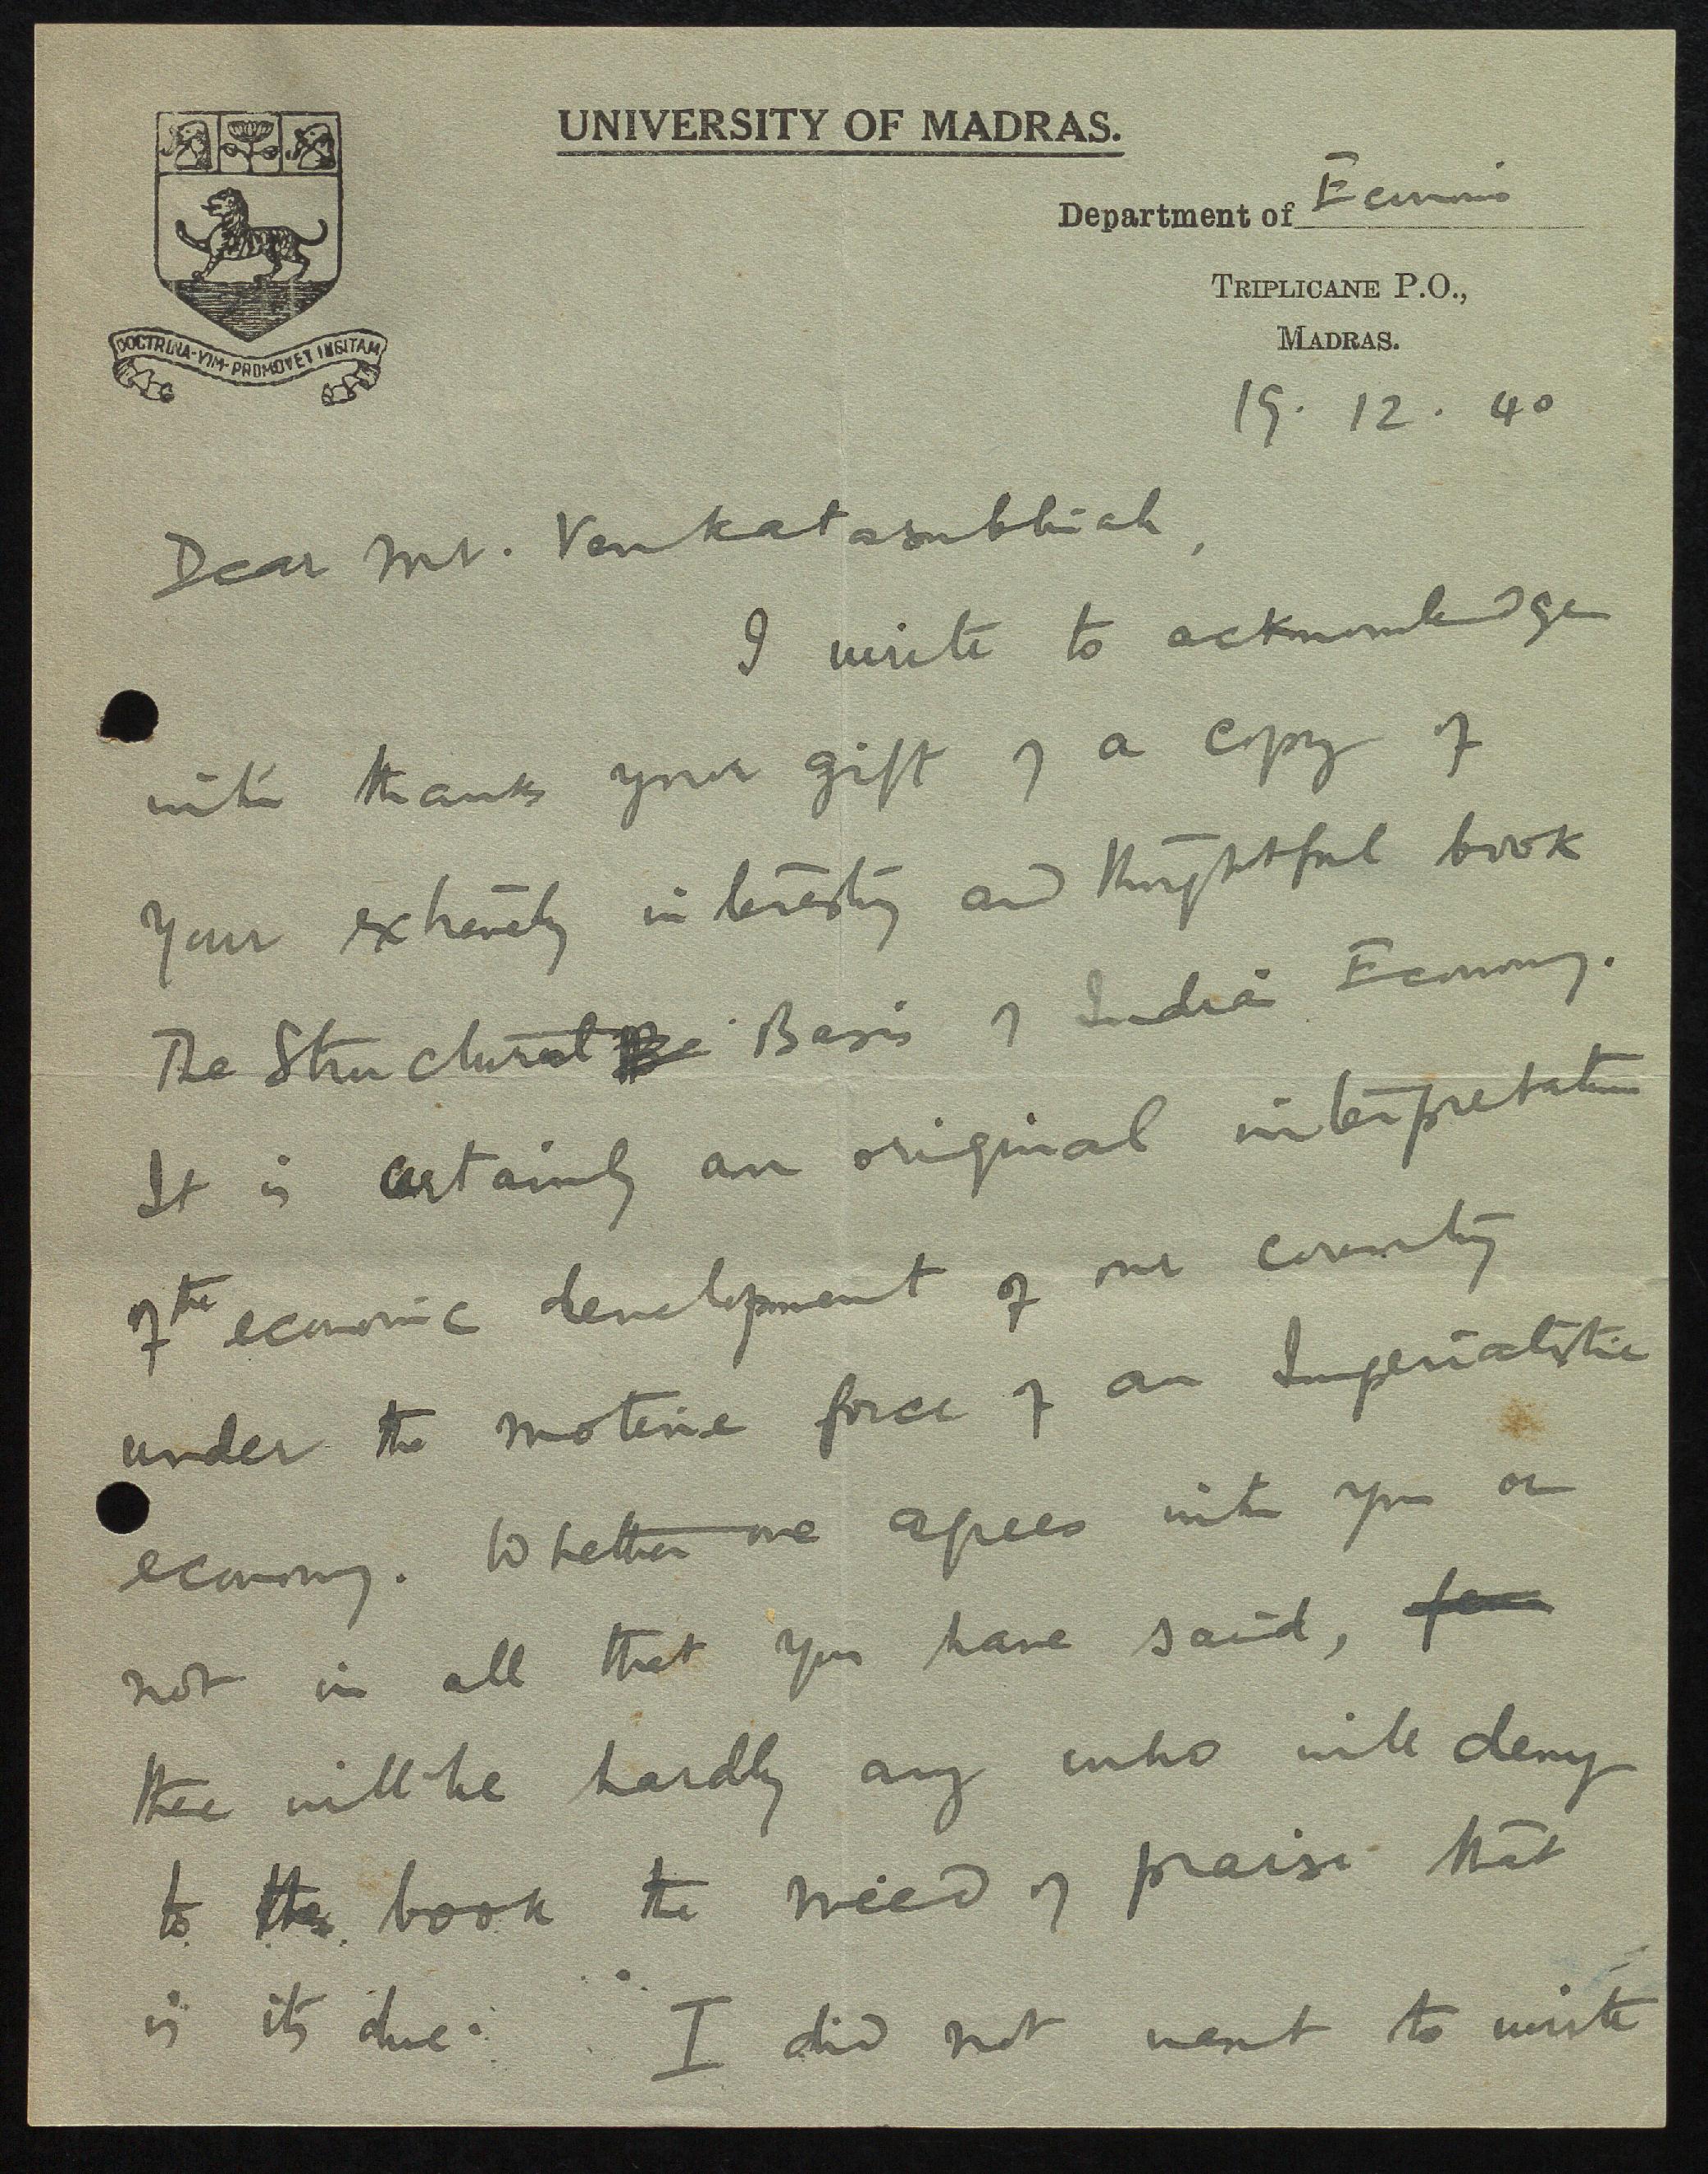 UNIVERSITY OF MADRAS.
Department of Economics
TRIPLICANE P.O.,
MADRAS.
DOCTRINA VIM PROMOVET INSITAM
19. 12. 40
Dear Mr. Venkatasubbiah,
I write to acknowledge
with thanks your gift of a copy of
your extremely interesting and thoughtful book
The Structural Basis of Indian Economy.
It is certainly an original interpretation
of the economic development of our country
under the motive force of an Imperialistic
economy. Whether one agrees with you or
not in all that you have said, few
there will be hardly any who will deny
to the book the meed of praise that
is its due. I did not want to write